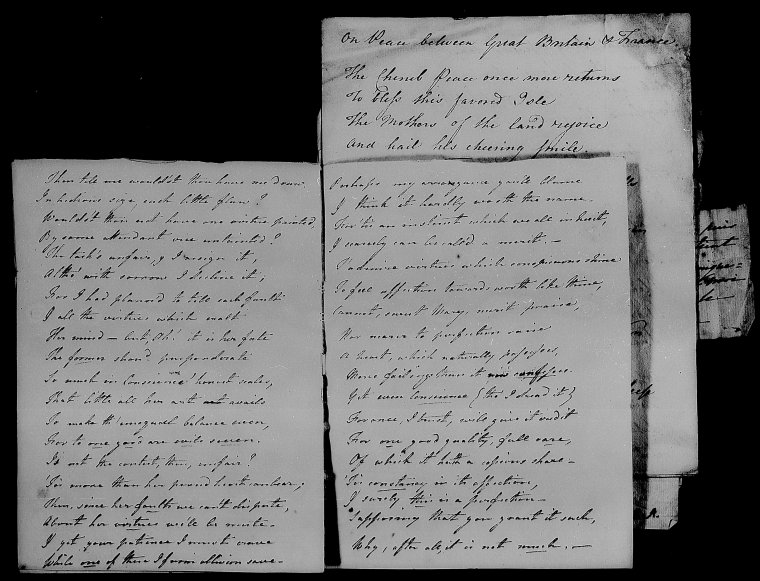 On Peace between Great Britain & France.
The Cherub Peace once more returns
To bless this favored Isle
The Mothers of the land rejoice
And hail his cheering smile.
Then tell me wouldst thou have me down
In hideous size, each little flaw?
Wouldst thou not have one virtue painted,
By some attendant vice untainted?
The task's unfair, & I resign it,
Altho' with sorrow I decline it,
For I had planned to tell each fault
& all the virtues which exalt
Her mind — but, Ah! it is her fate
The former shou'd preponderate
So much in Conscience' honest scales,
That little all her art avails
To make th' unequal balance even,
For to one good are evils seven.
Is not the contest, then, unfair?
'Tis more than her proud heart can bear;
Then, since her faults we can't dispute,
About her virtues we'll be mute—
& yet your patience I must crave
While one of these I from oblivion save—
Perhaps my arrogance you'll blame
I think it hardly worth the name
For 'tis an instinct which we all inherit,
& scarcely can be call'd a merit.—
T'admire virtues which conspicuous shine
To feel affection towards worth like thine,
Cannot, sweet Mary, merit praise,
Nor nearer to perfection raise
A heart, which naturally possesses,
More failings than it confesses.
Yet even Conscience (tho' I dread it)
For once, I trust, will give it credit
For one good quality, full rare,
Of which it hath a copious share—
'Tis constancy in its affection,
& surely this is a perfection—
Supposing that you grant it such,
Why, after all, it is not much.—